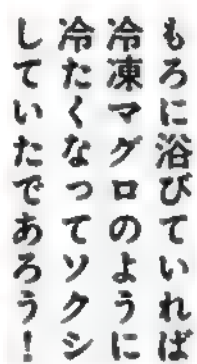 もろに浴びていれば
冷凍マグロのように
冷たくなってソクシ
していたであろう！